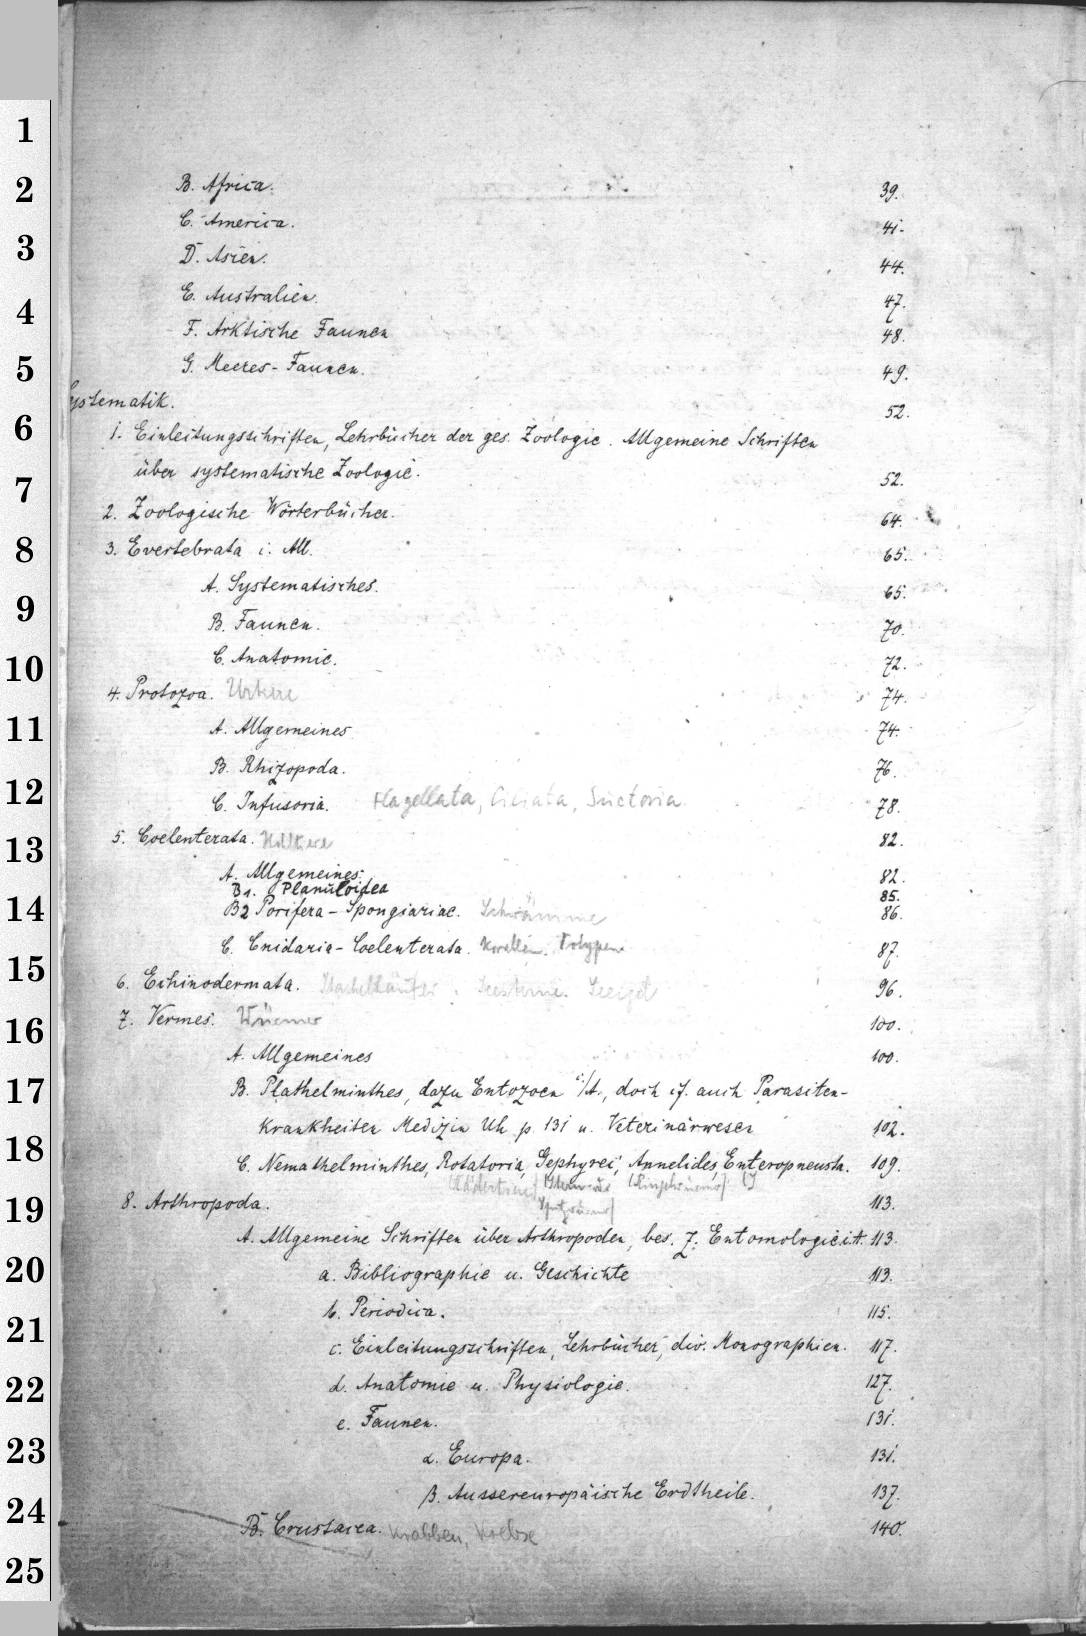 1
2
3
4
5
6
7
8
9
10
11
12
13
14
15
16
17
18
19
20
21
22
23
24
25
B. Africa. 39.
C. America. 41.
D. Asien. 44.
E. Australien. 47.
F. Arktische Faunen 48.
G. Meeres-Faunen. 49.
Systematik. 52.
1. Einleitungsschriften, Lehrbücher der ges. Zoologie. Allgemeine Schriften
über systematische Zoologie. 52.
2. Zoologische Wörterbücher. 64.
3. Evertebrata i. All. 65.
A. Systematisches. 65.
B. Faunen. 70.
C. Anatomie. 72.
4. Protozoa. Urtiere 74.
A. Allgemeines 74.
B. Rhizopoda. 76.
C. Infusoria. Flagellata, Ciliata, Suctoria. 78.
5. Coelenterata. Hohltiere 82.
A. Allgemeines. 82.
B1. Planuloidea 85.
B2 Porifera - Spongiariae. Schwämme 86.
C. Cnidaria - Coelenterata. Korallen. Polypen 87.
6. Echinodermata. Stachelhäuter. Seesterne. Seeigel 96.
7. Vermes. Würmer 100.
A. Allgemeines 100.
B. Plathelminthes, dazu Entozoen i/A., doch cf. auch Parasiten-
krankheiten Medizin Uh p. 131 u. Veterinärwesen 102.
C. Nemathelminthes, Rotatoria, Gephyrei, Annelides, Enteropneusta. 109.
(Rädertiere) (Sternwü (Ringelwürmer)
Spritzwürmer)
8. Arthropoda. 113.
A. Allgemeine Schriften über Arthropoden, bes. z. Entomologie i. A. 113.
a. Bibliographie u. Geschichte 113.
b. Periodica. 115.
c. Einleitungsschriften, Lehrbücher, div. Monographien. 117.
d. Anatomie u. Physiologie. 127.
e. Faunen. 131.
α. Europa. 131.
β. Aussereuropäische Erdtheile. 137.
B. Crustacea. Krabben, Krebse 140.